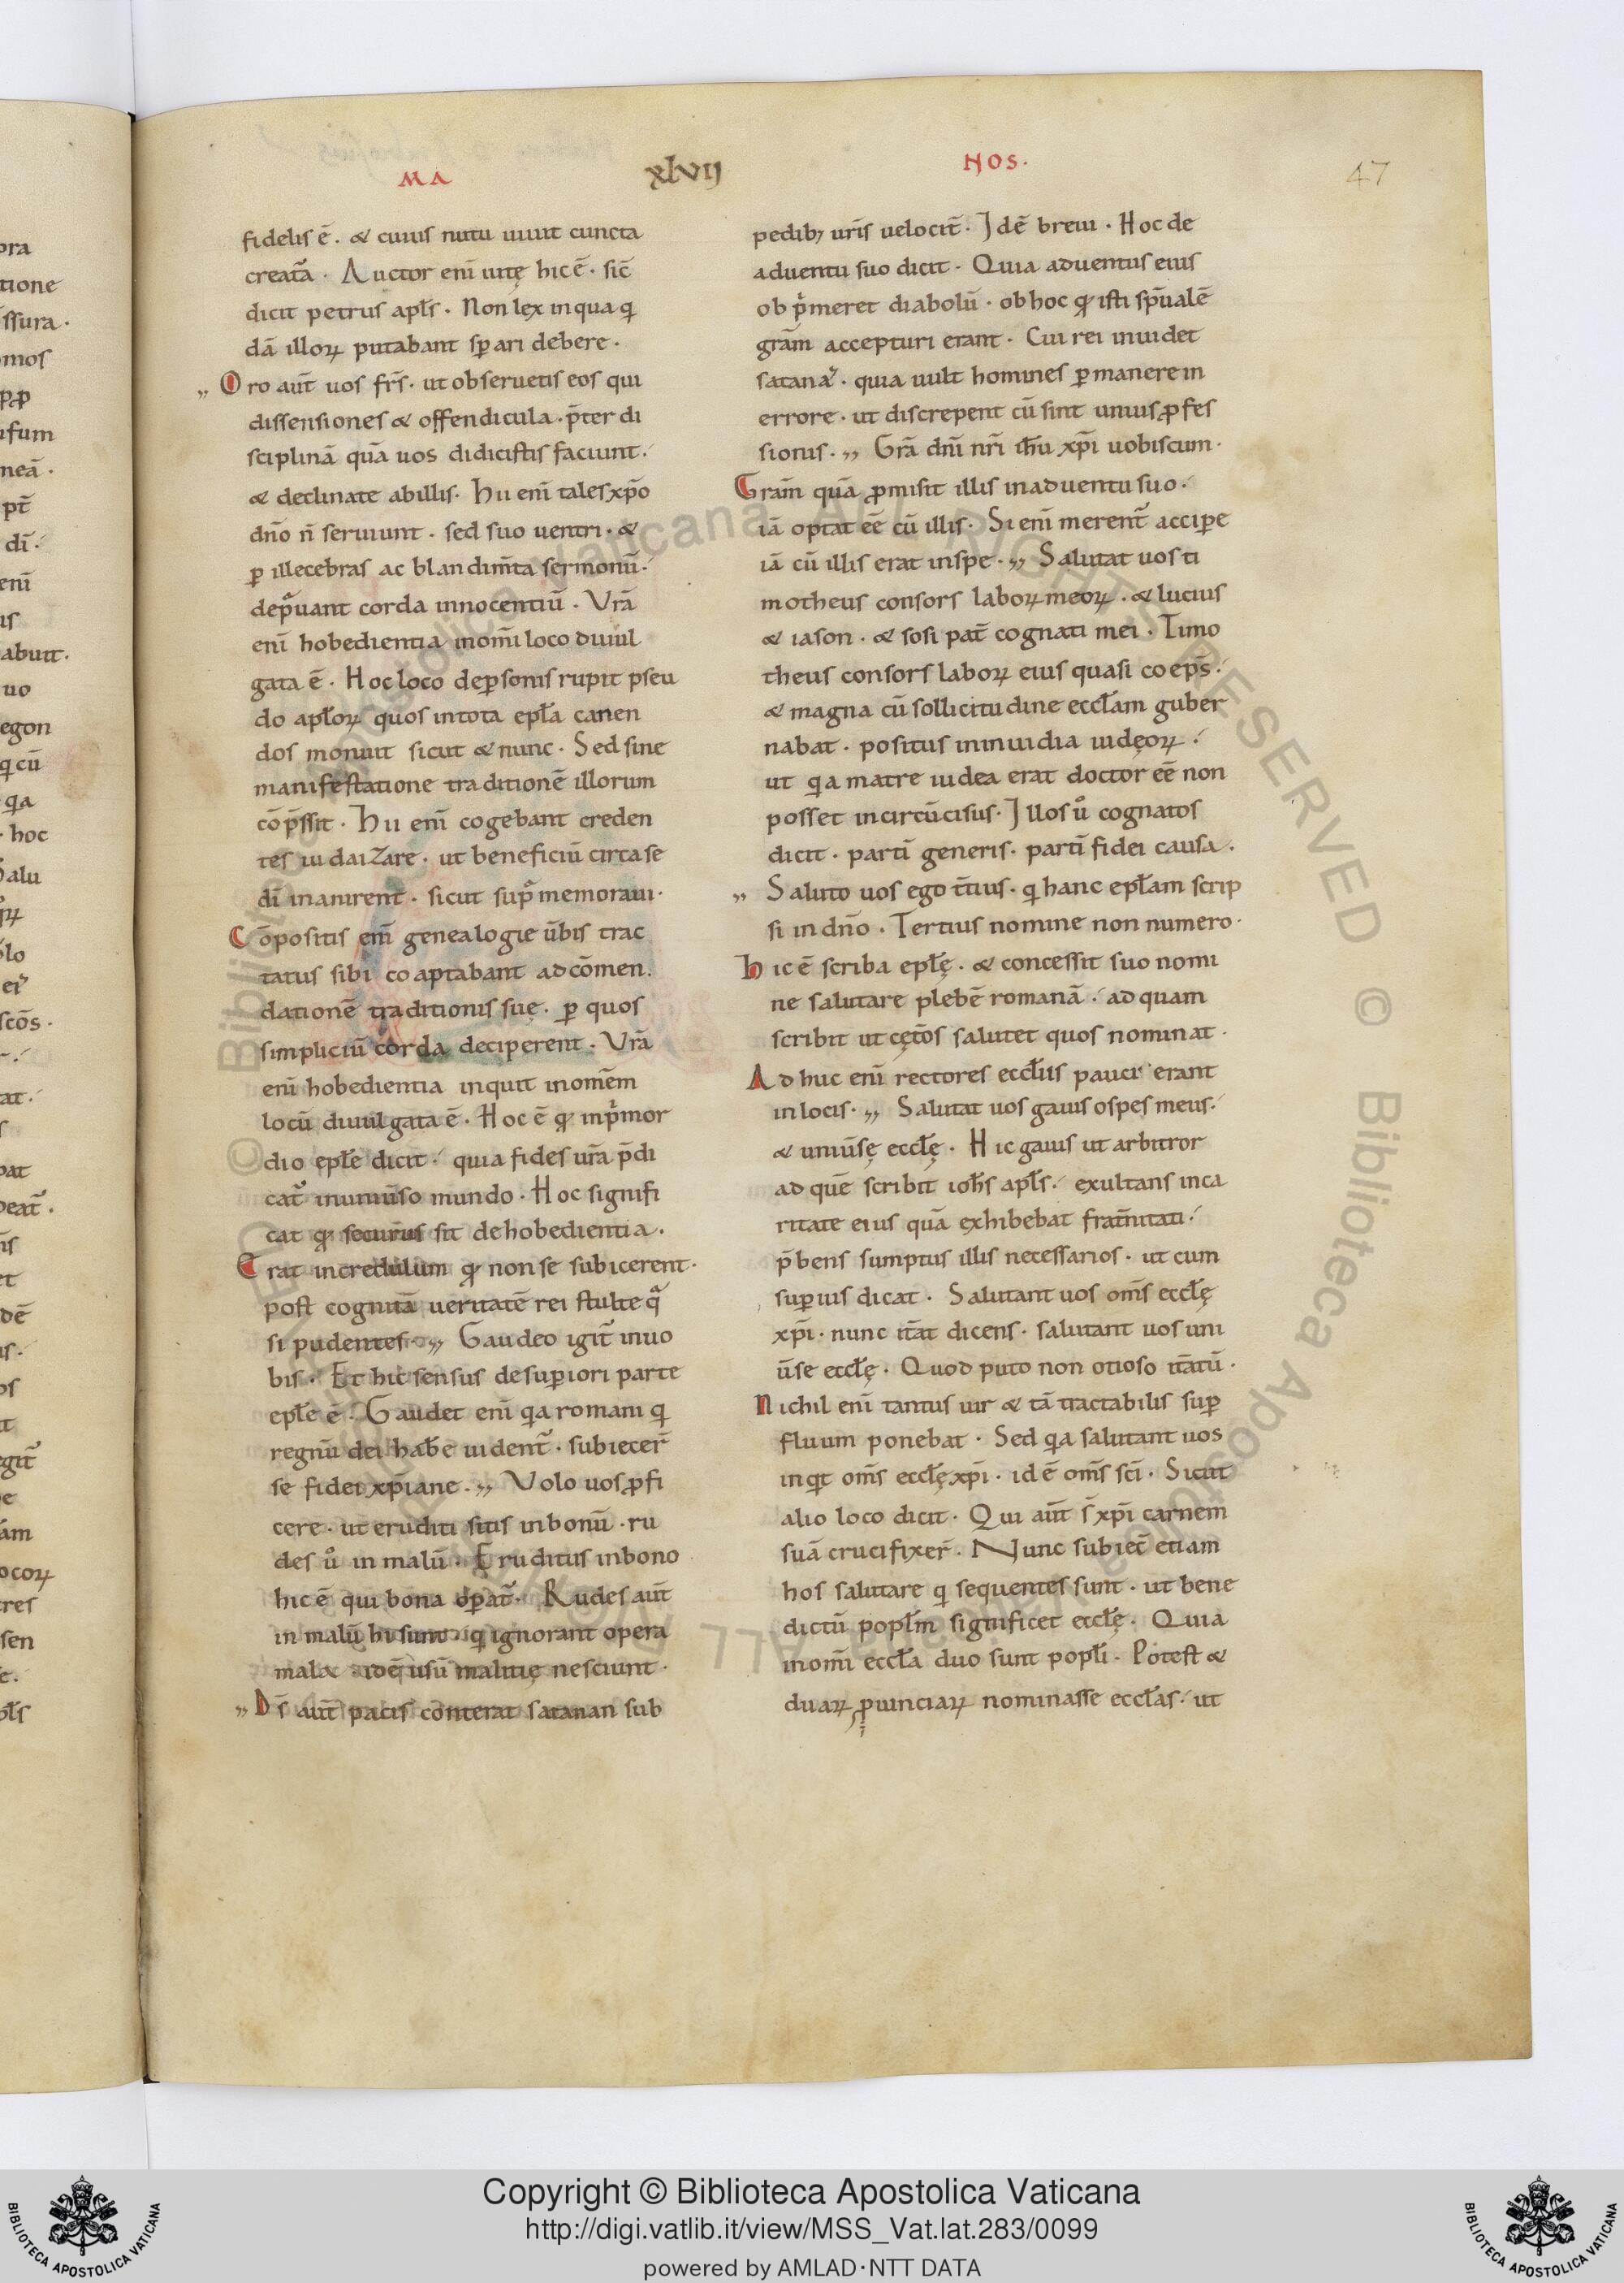 MA
xlvij
NOS.
47
fidelis ē. & cuius nutu uiuit cuncta
creat̄a. Auctor eni᷄ uitę hic ē. sic̄
dicit petrus apl̄s. Non lex in qua qi
dā illoꝝ putabant sꝑari debere.
„ Oro aut̄ uos fr̄s. ut obseruetis eos qui
dissensiones & offendicula. p̄ter di
sciplinā quā uos didicistis faciunt.
& declinate ab illis. Hii eni᷄ tales xp̄o
dn̄o n̄ seruiunt. sed suo uentri. &
ꝑ illecebras ac blandim̄ta sermonū.
depͣuant corda innocentiū. Vr̄a
eni᷄ hobedientia in om̄i loco diuul
gata ē. Hoc loco de ꝑsonis rupit pseu
do apl̄oꝝ quos in tota epl̄a cauen
dos monuit sicut & nunc. Sed sine
manifestatione traditionē illorum
cōp̄ssit. Hii eni᷄ cogebant creden
tes iudaizare. ut beneficiū circa se
dī inanirent. sicut supͣ memoraui.
Cōpositis eni᷄ genealogie ūbis trac
tatus sibi coaptabant ad cōmen
dationē traditionis suę. ꝑ quos
simpliciū corda deciperent. Vr̄a
eni᷄ hobedientia inquit in omēm
locū diuulgata ē. Hoc ē qđ in pͥmor
dio epl̄e dicit. quia fides ur̄a p̄di
cat᷑ in uniūso mundo. Hoc signifi
cat qđ securus sit de hobedientia.
Erat incredulum qđ non se subicerent.
post cognitā ueritatē rei stulte qͣ
si pudentes. „ Gaudeo igit᷑ in uo
bis. Et hic sensus de suꝑiori parte
epl̄e ē. Gaudet eni᷄ qia romani qi
regnū dei hab̄e uident᷑. subiecer̄
se fidei xp̄iane. „ Volo uos ꝓfi
cere. ut eruditi sitis in bonū. ru
des uͦ in malū. Eruditus in bono
hic ē qui bona oꝑat᷑. Rudes aut̄
in malū hi sunt. qi ignorant opera
mala idē usū malitię nesciunt.
„ Ds̄ aut̄ pacis conterat satanan sub
pedibꝫ ur̄is uelocit̄. Idē breui. Hoc de
aduentu suo dicit. Quia aduentus eius
ob pͥmeret diabolū. ob hoc qđ isti sp̄ualē
gr̄am accepturi erant. Cui rei inuidet
satanas. quia uult homines ꝑmanere in
errore. ut discrepent cū sint unius ꝓfes
sionis. „ Gr̄a dn̄i nr̄i ih̄u xp̄i uobiscum.
Gram̄ quā ꝓmisit illis in aduentu suo.
iā optat eē cū illis. Si eni᷄ merent᷑ acciꝑe
iā cū illis erat in spe. „ Salutat uos ti
motheus consors laboꝝ meoꝝ. & lucius
& iason. & sosi pat̄ cognati mei. Timo
theus consors laboꝝ eius quasi coep̄s.
& magna cū sollicitudine eccl̄am guber
nabat. positus in inuidia iudęoꝝ.
ut qi a matre iudea erat doctor eē non
posset incircūcisus. Illos uͦ cognatos
dicit. partī generis. partī fidei causa.
„ Saluto uos ego t̄tius. qi hanc epl̄am scrip
si in dn̄o. Tertius nomine non numero.
Hic ē scriba epl̄ę. & concessit suo nomi
ne salutare plebē romanā. ad quam
scribit ut cęt̄os salutet quos nominat.
Ad huc eni᷄ rectores eccl̄iis pauci erant
in locis. „ Salutat uos gaius ospes meus.
& uniūsę eccl̄ę. Hic gaius ut arbitror
ad quē scribit ioh̄s apl̄s. exultans in ca
ritate eius quā exhibebat frat̄nitati.
p̄bens sumptus illis necessarios. ut cum
suꝑius dicat. Salutant uos om̄s eccl̄ę
xp̄i. nunc it̄at dicens. salutant uos uni
ūse eccl̄ę. Quod puto non otioso it̄atū.
Nichil eni᷄ tantus uir & tā tractabilis suꝑ
fluum ponebat. Sed qia salutant uos
inqit om̄s eccl̄ę xp̄i. id ē om̄s sc̄i. Sicut
alio loco dicit. Qui aut̄ s̄ xp̄i carnem
suā crucifixer̄. Nunc subiec̄ etiam
hos salutare qi sequentes sunt. ut bene
dictū popl̄m significet eccl̄ę. Quia
in om̄i eccl̄a duo sunt popl̄i. Potest &
duaꝝ ꝓuinciaꝝ nominasse eccl̄as. ut
Copyright © Biblioteca Apostolica Vaticana
http://digi.vatlib.it/view/MSS_Vat.lat.283/0099
powered by AMLAD·NTT DATA
BIBLIOTECA APOSTOLICA VATICANA
BIBLIOTECA APOSTOLICA VATICANA